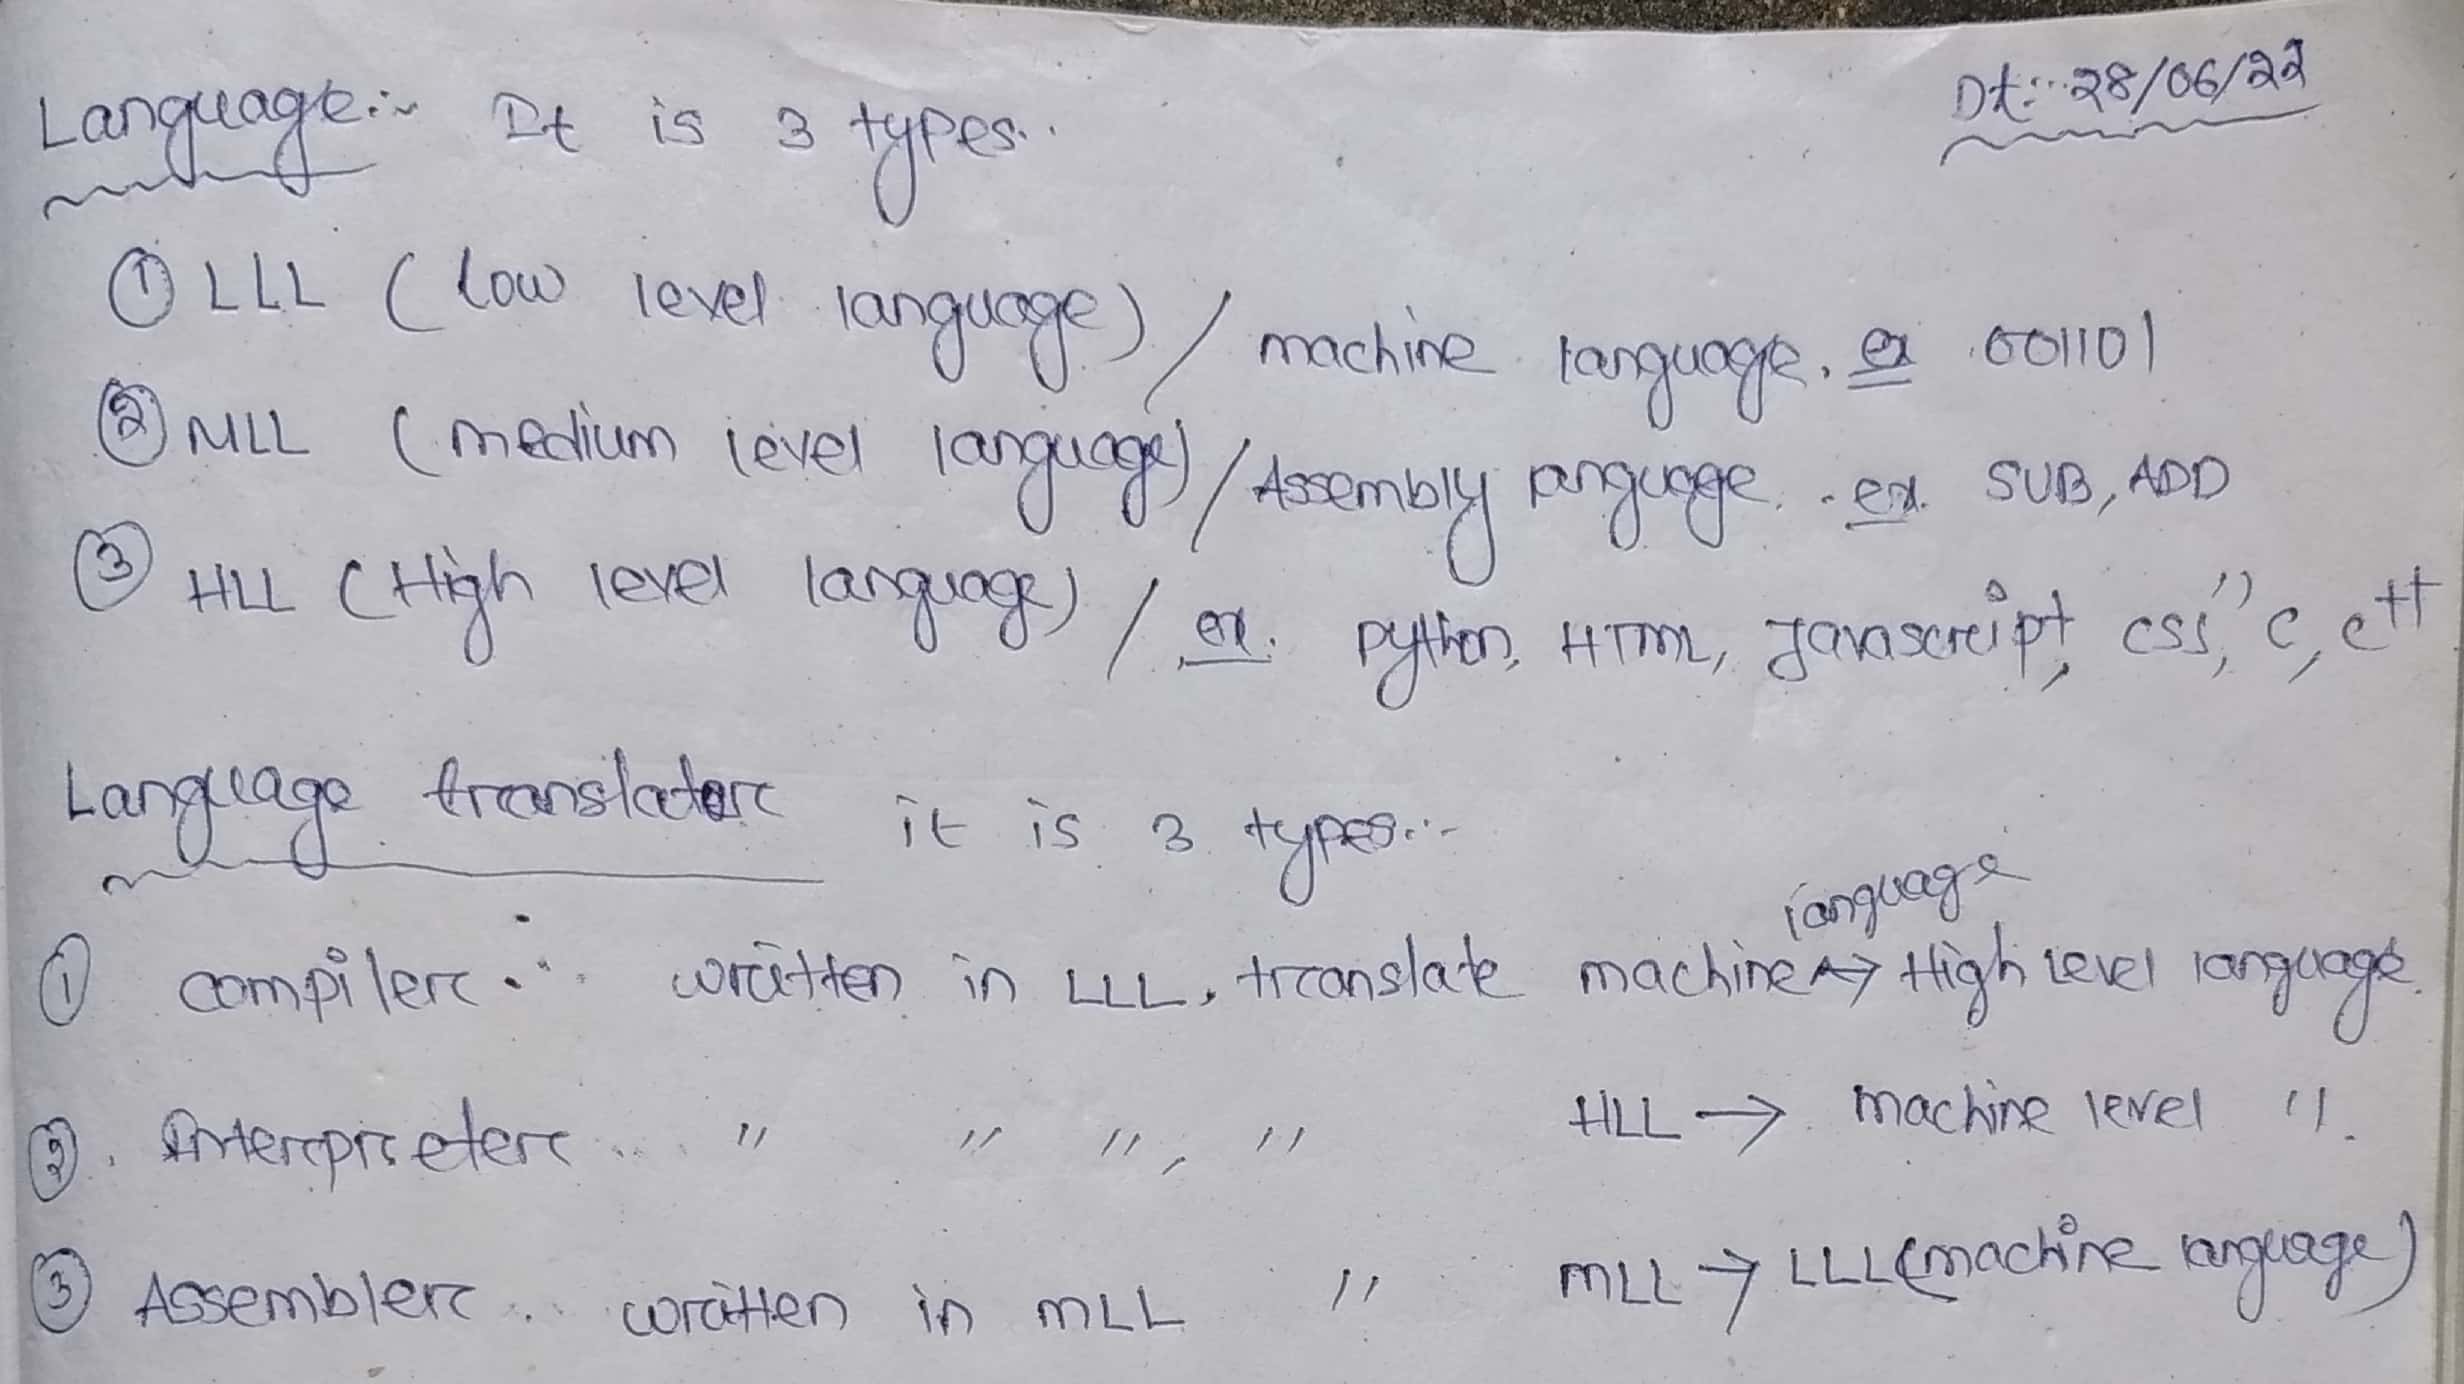 Dt:- 28/06/22
Language:- It is 3 types..
① LLL (low level language) / machine language. ex 001101
② MLL (medium level language) / Assembly language. ex. SUB, ADD
③ HLL (High level language) / ex. python, HTML, Javascript, css, c, c++
Language translator it is 3 types..-
① compiler :- written in LLL, translate machine language → High level language.
② Interpreter .. " " ", " HLL → machine level ".
③ Assembler .. written in MLL " MLL → LLL (machine language)